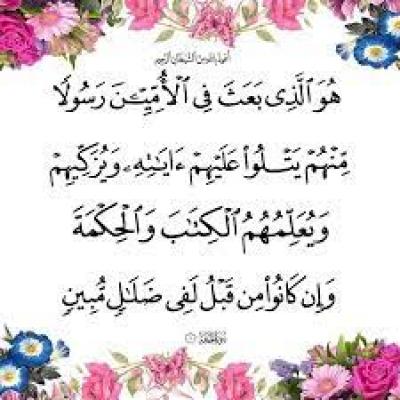 أعوذ بالله من الشيطان الرجيم
هُوَ ٱلَّذِى بَعَثَ فِى ٱلْأُمِّيِّـۧنَ رَسُولًا
مِّنْهُمْ يَتْلُوا۟ عَلَيْهِمْ ءَايَـٰتِهِۦ وَيُزَكِّيهِمْ
وَيُعَلِّمُهُمُ ٱلْكِتَـٰبَ وَٱلْحِكْمَةَ
وَإِن كَانُوا۟ مِن قَبْلُ لَفِى ضَلَـٰلٍ مُّبِينٍ